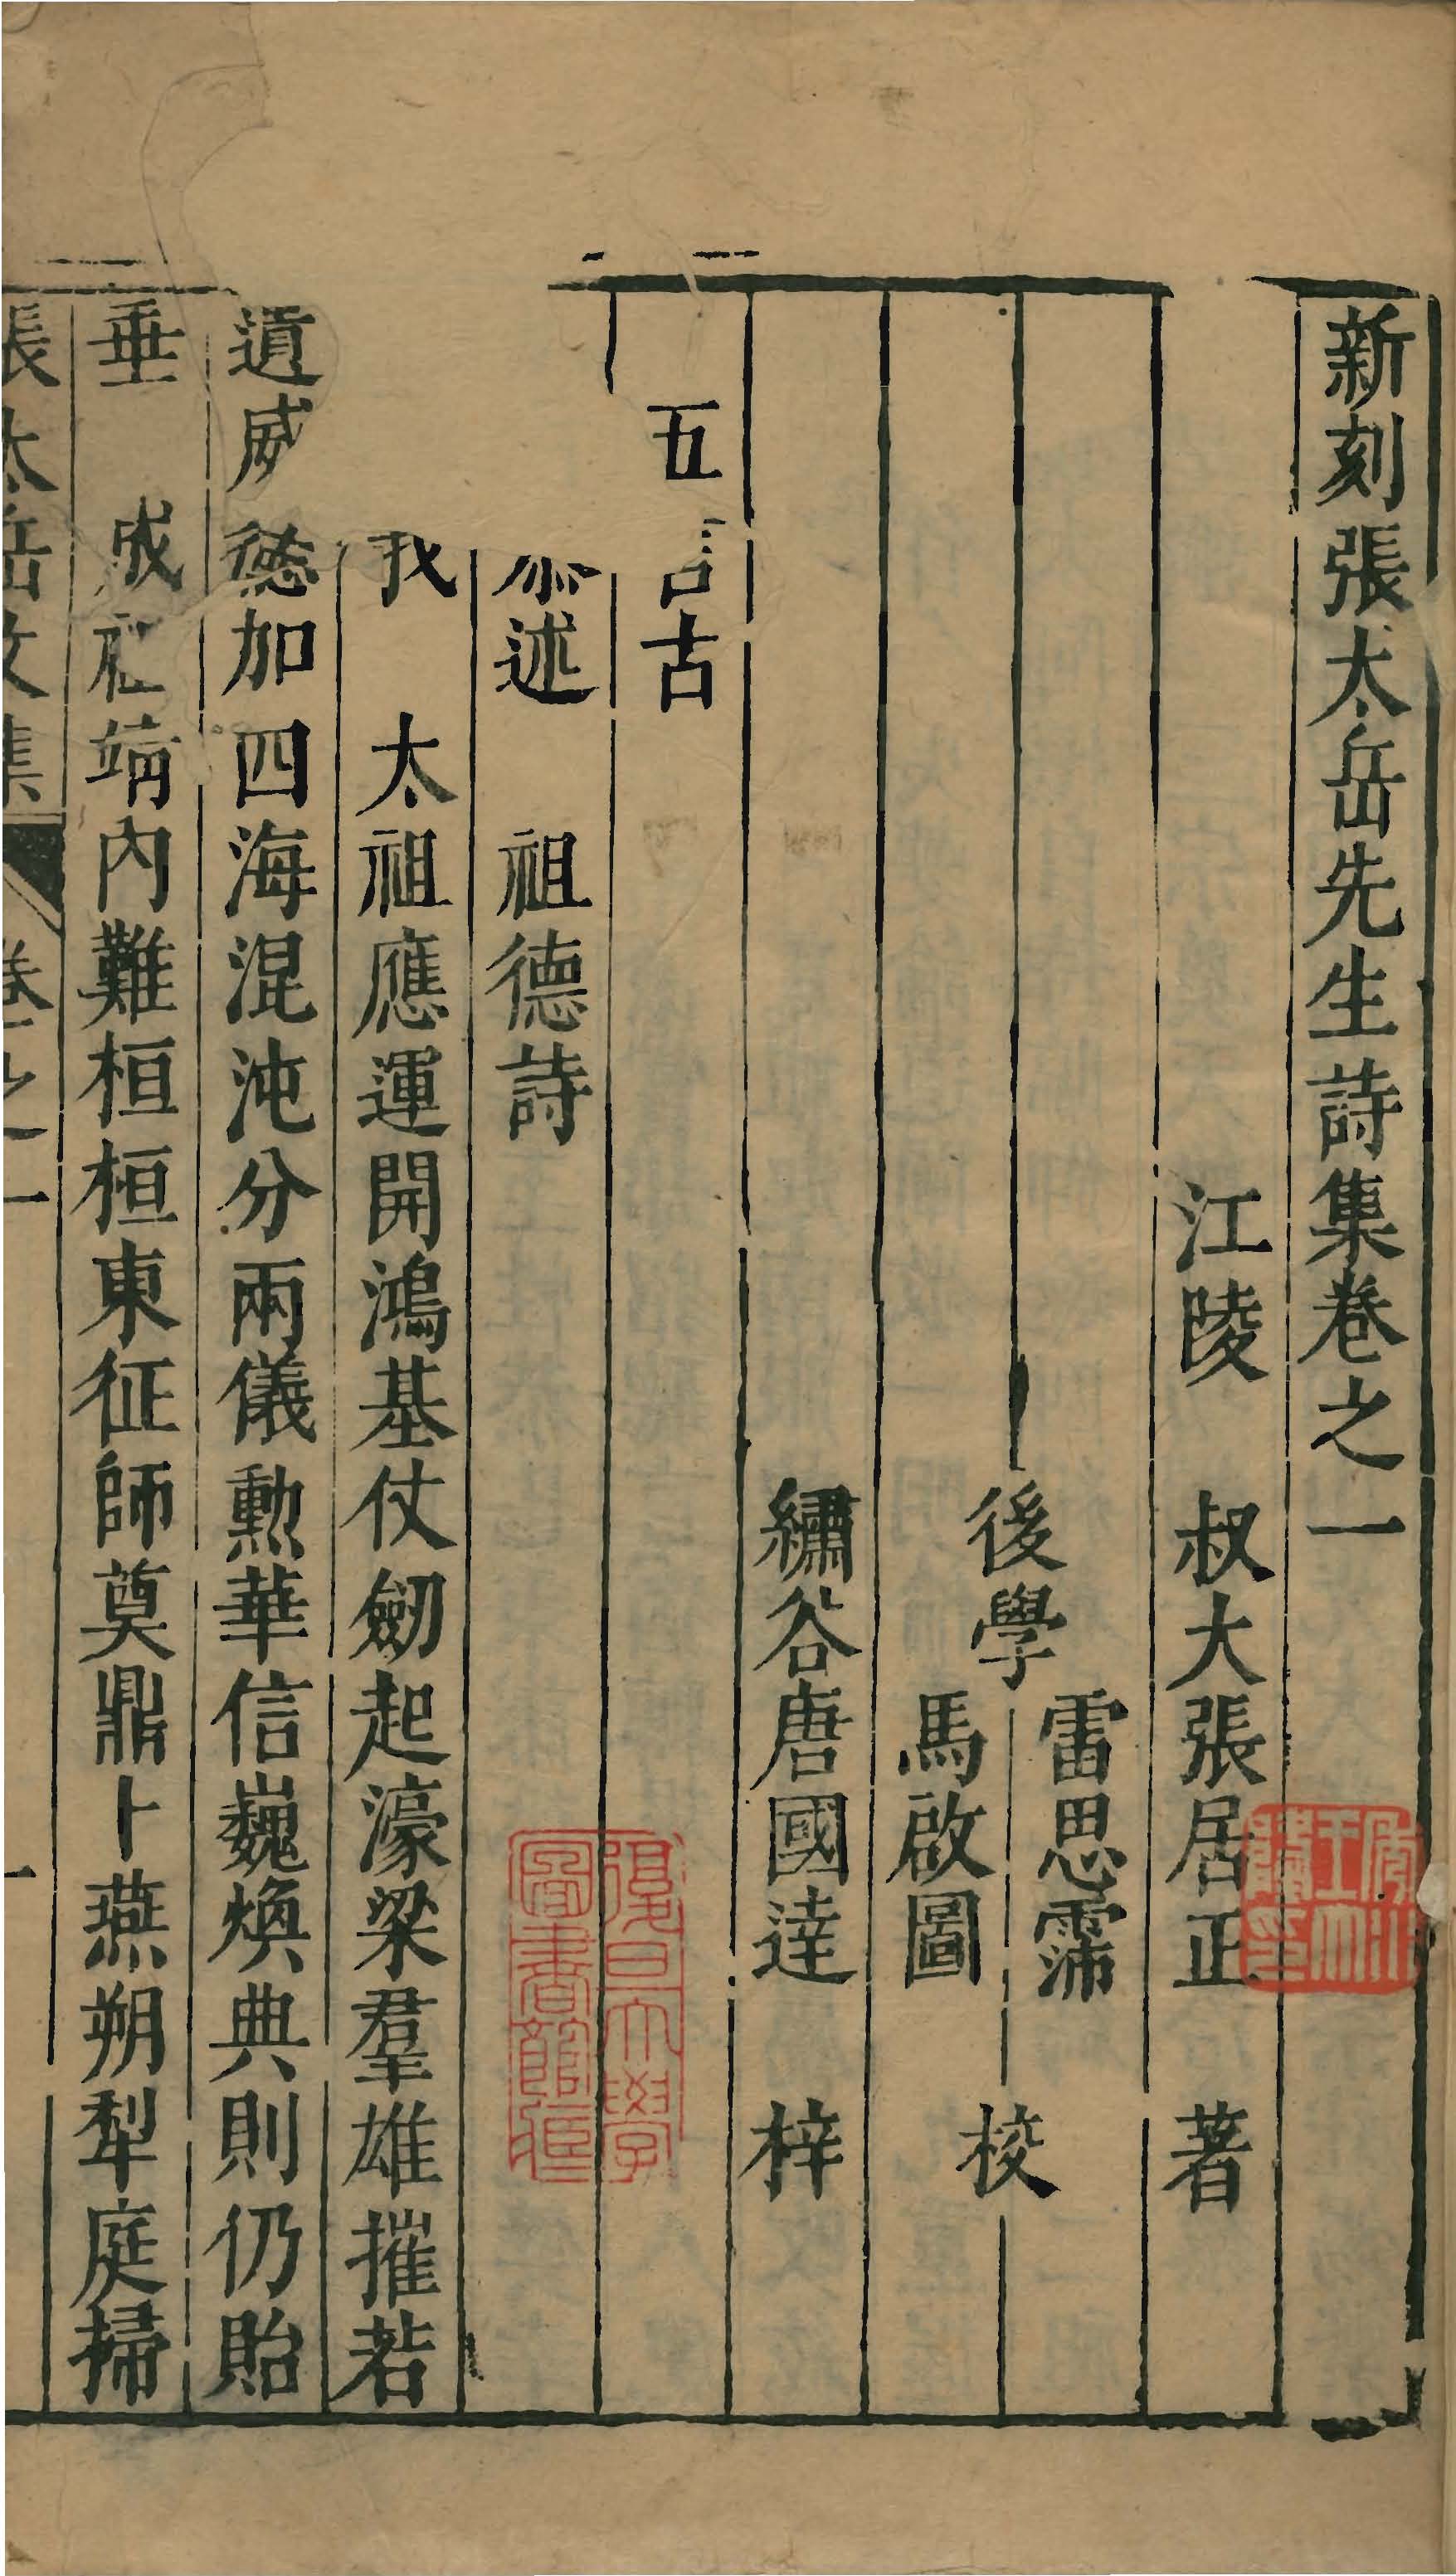 新刻張太岳先生詩集卷之一
江陵 叔大張居正 著
後學 雷思霈
馬啟圖 校
繡谷唐國達 梓
五言古
恭述 祖德詩
我 太祖應運開鴻基仗劒起濠梁羣雄摧若
遺威德加四海混沌分兩儀勲華信巍煥典則仍貽
垂 成祖靖內難桓桓東征師奠鼎卜燕朔犁庭掃
張太岳文集 卷之一 一
復旦大學
圖書館藏